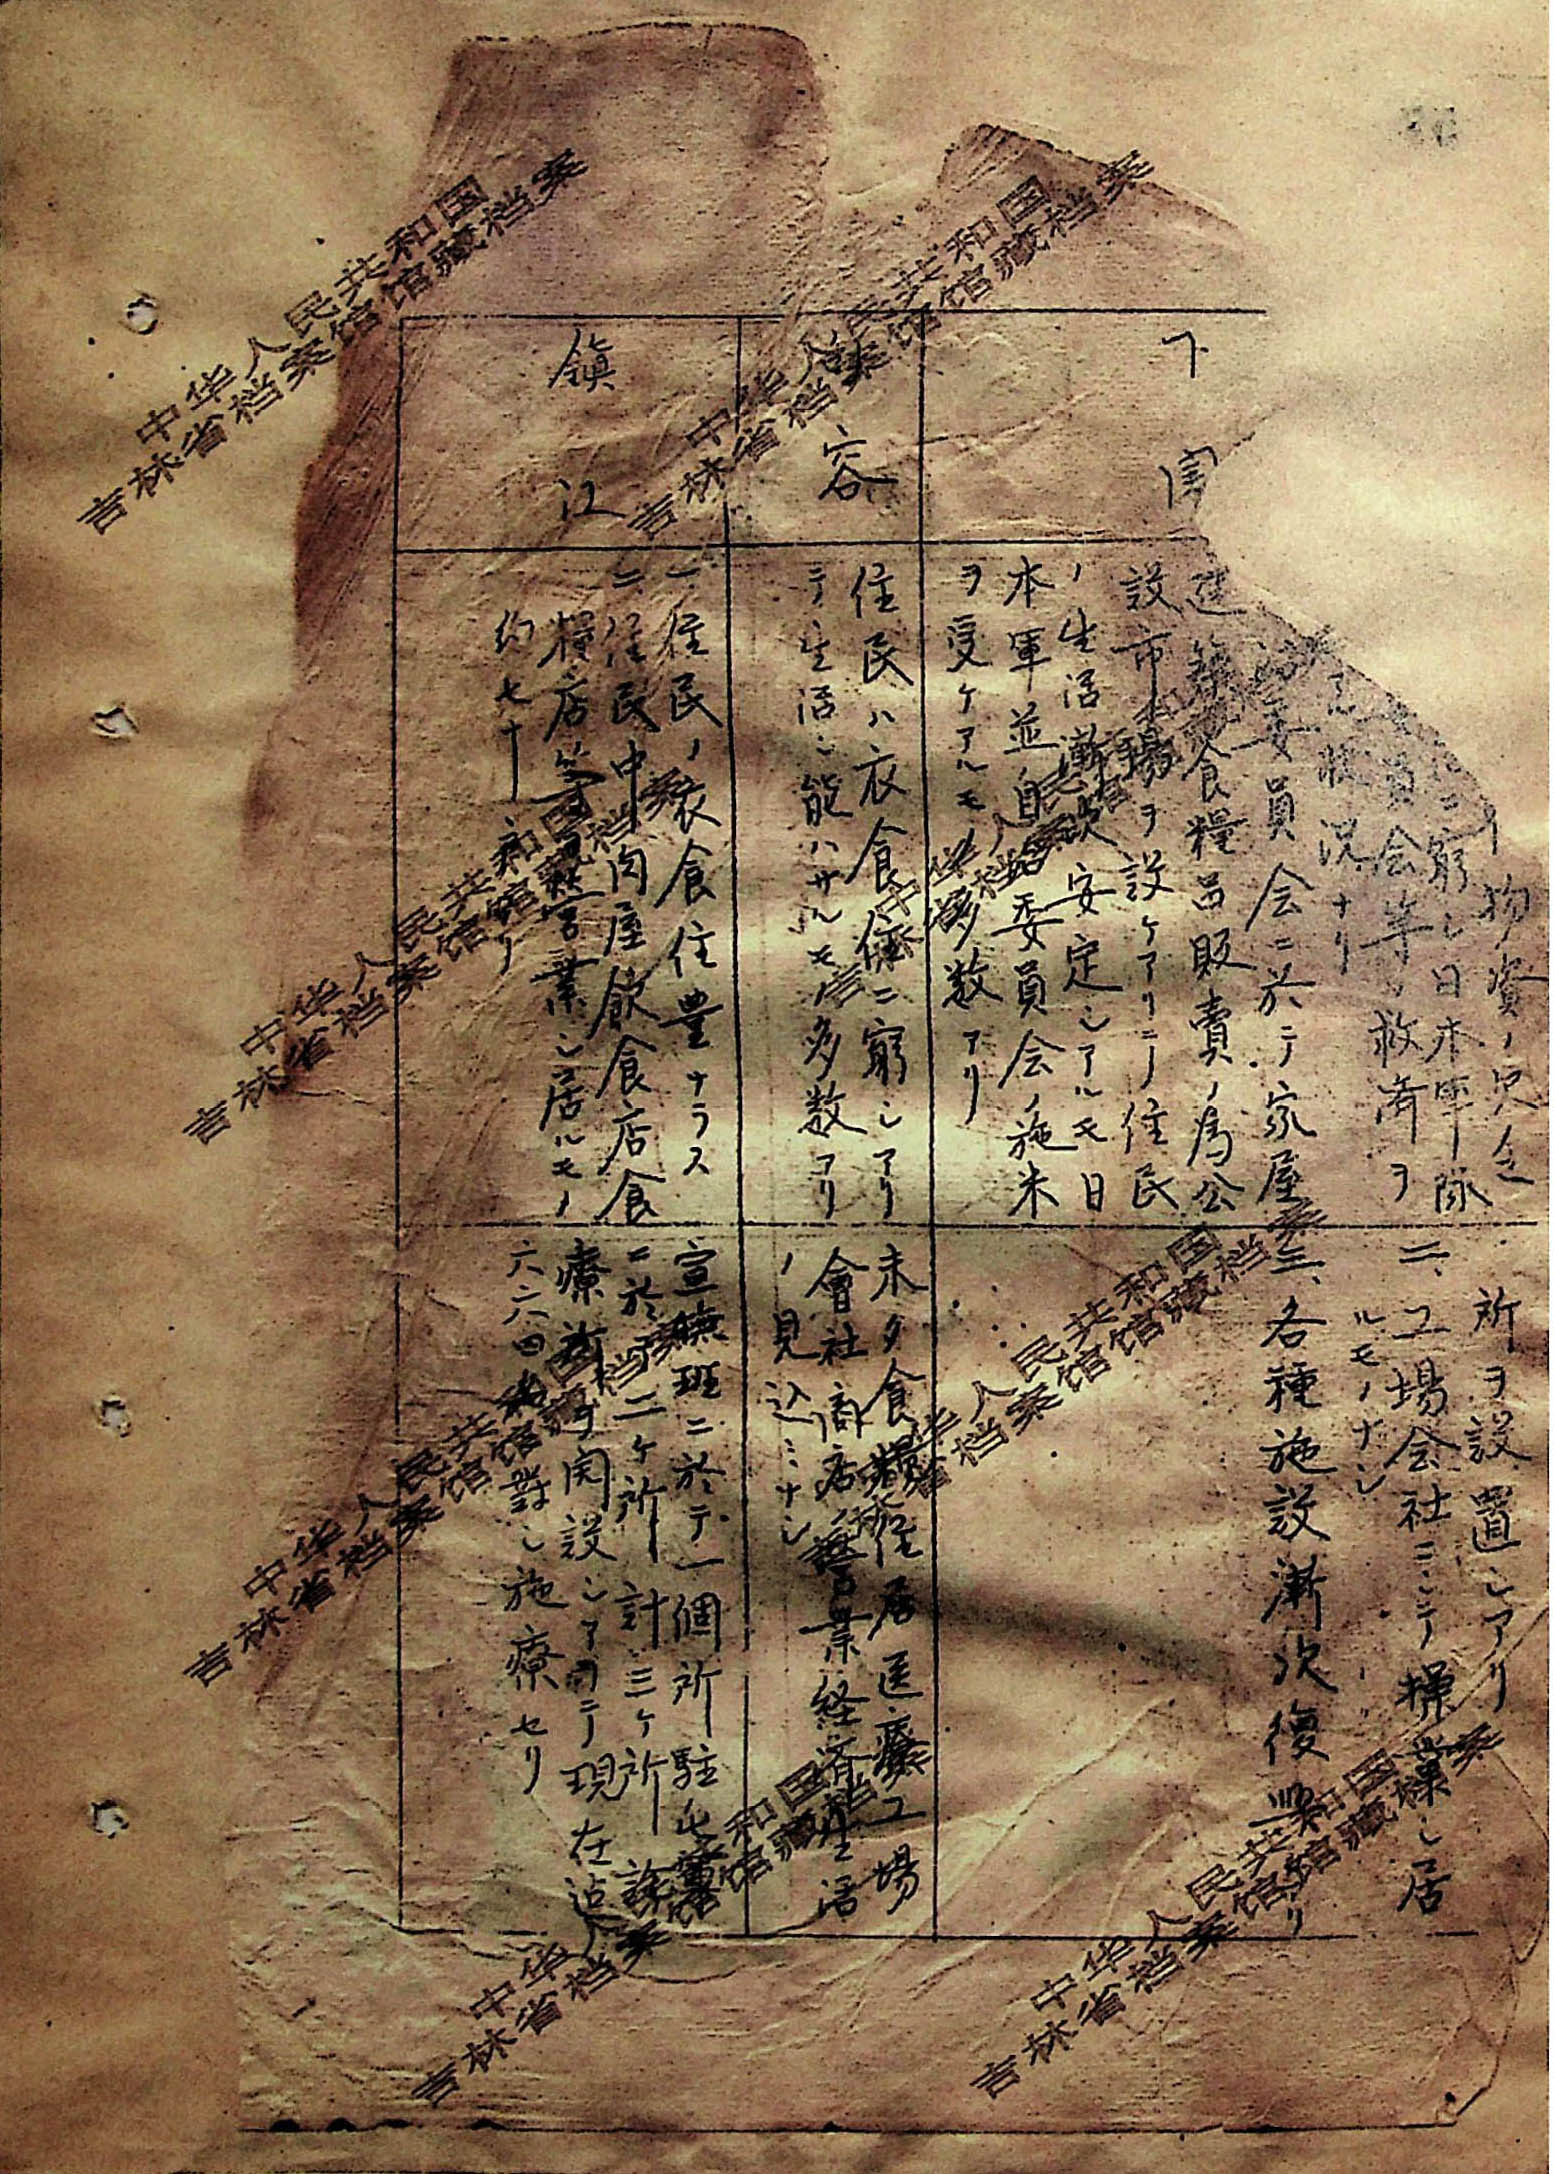 物資ノ
ニ窮シ日本軍隊
員会等ノ救済ヲ
状況ナリ
委員会ニ於テ家屋
建築食糧品販賣ノ為公
設市場ヲ設ケアリテ住民
ノ生活漸次安定シアルモ日
本軍並自治委員会ノ施米
ヲ受ケアルモ多数アリ
所ヲ設置シアリ
二、工場会社ニシテ操業シ居
ルモノナシ
三、各種施設漸次復興
下
容
住民ハ衣食住ニ窮シアリ
テ生活シ能ハサルモ多数アリ
未タ食糧住居医療工場
會社商店ノ營業経済生活
ノ見込ミナシ
鎮
江
一、住民ノ衣食住豊ナラス
二、住民中肉屋飲食店食
糧店等營業シ居ルモノ
約七十
宣撫班ニ於テ一個所駐
ニ於テ二ケ所計三ケ所
療所ヲ開設シアリテ現在迠
六六四名ニ對シ施療セリ
中华人民共和国
吉林省档案馆馆藏档案
中华人民共和国
吉林省档案馆馆藏档案
中华人民共和国
吉林省档案馆馆藏档案
中华人民共和国
吉林省档案馆馆藏档案
中华人民共和国
吉林省档案馆馆藏档案
中华人民共和国
吉林省档案馆馆藏档案
中华人民共和国
吉林省档案馆馆藏档案
中华人民共和国
吉林省档案馆馆藏档案